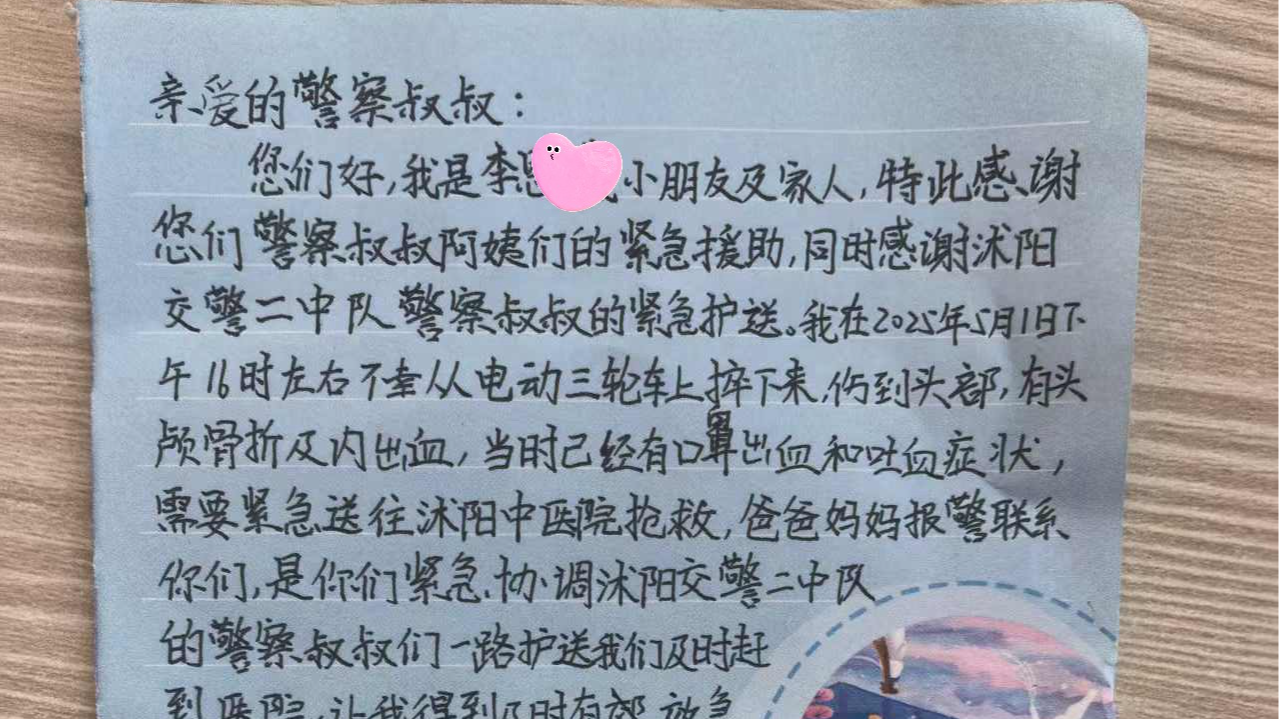 亲爱的警察叔叔：
您们好，我是李 小朋友及家人，特此感谢
您们警察叔叔阿姨们的紧急援助，同时感谢沭阳
交警二中队警察叔叔的紧急护送。我在2025年5月1日下
午16时左右不幸从电动三轮车上摔下来，伤到头部，有头
颅骨折及内出血，当时已经有口鼻出血和吐血症状，
需要紧急送往沭阳中医院抢救，爸爸妈妈报警联系
你们，是你们紧急协调沭阳交警二中队
的警察叔叔们一路护送我们及时赶
到医院，让我得到及时有效